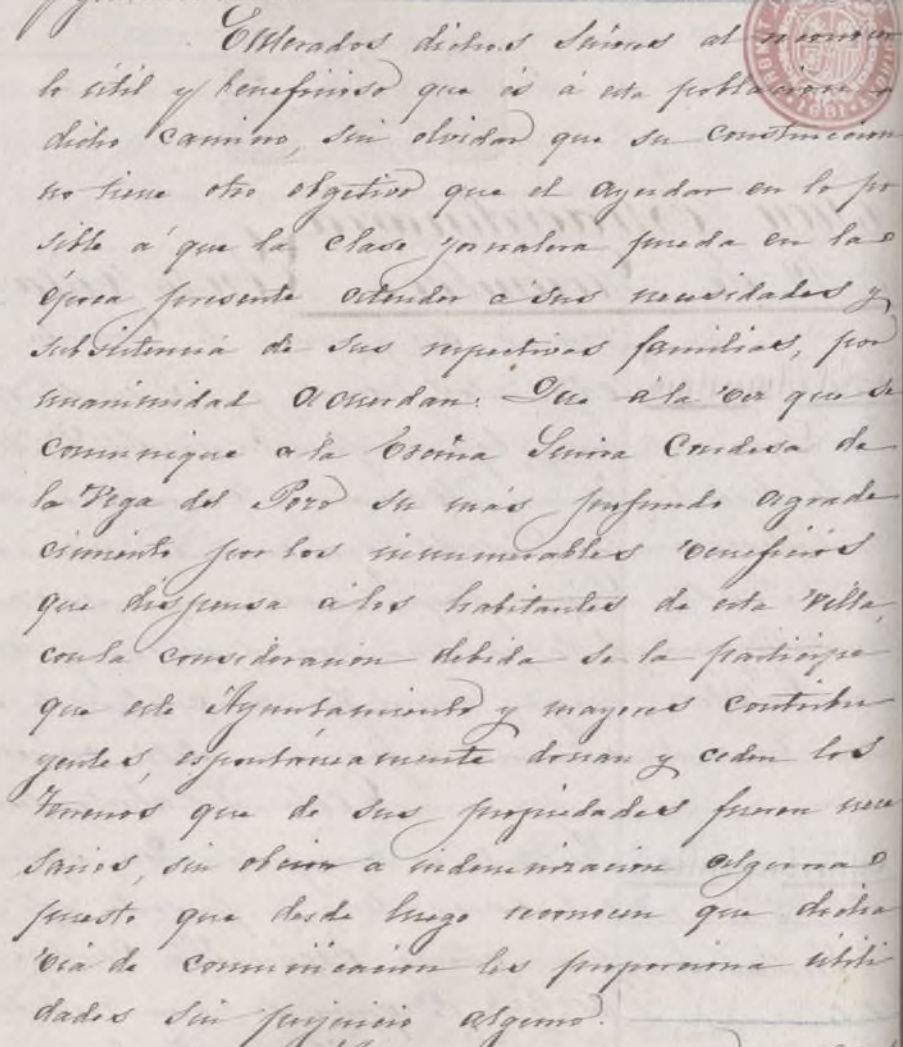 Enterados dichos Señores al reconocer
lo útil y beneficioso que es á esta poblacion
dicho camino, sin olvidar que su construccion
no tiene otro objetivo que el ayudar en lo po
sible á que la clase jornalera pueda en la
época presente atender a sus necesidades y
subsistencia de sus repectivas familias, por
unanimidad acuerdan: Que á la vez que se
comunique a la Excma Señora Condesa de
la Vega del Pozo su más profundo agrade
cimiento por los innumerables beneficios
que dispensa á los habitantes de esta villa,
con la consideracion debida se la participe
que este Ayuntamiento y mayores contribu
yentes, espontáneamente donan y ceden los
terrenos que de sus propiedades fueren nece
sarios, sin a indemnizacion alguna
puesto que desde luego reconocen que dicha
via de comunicacion les proporciona utili
dades sin perjuicio alguno.